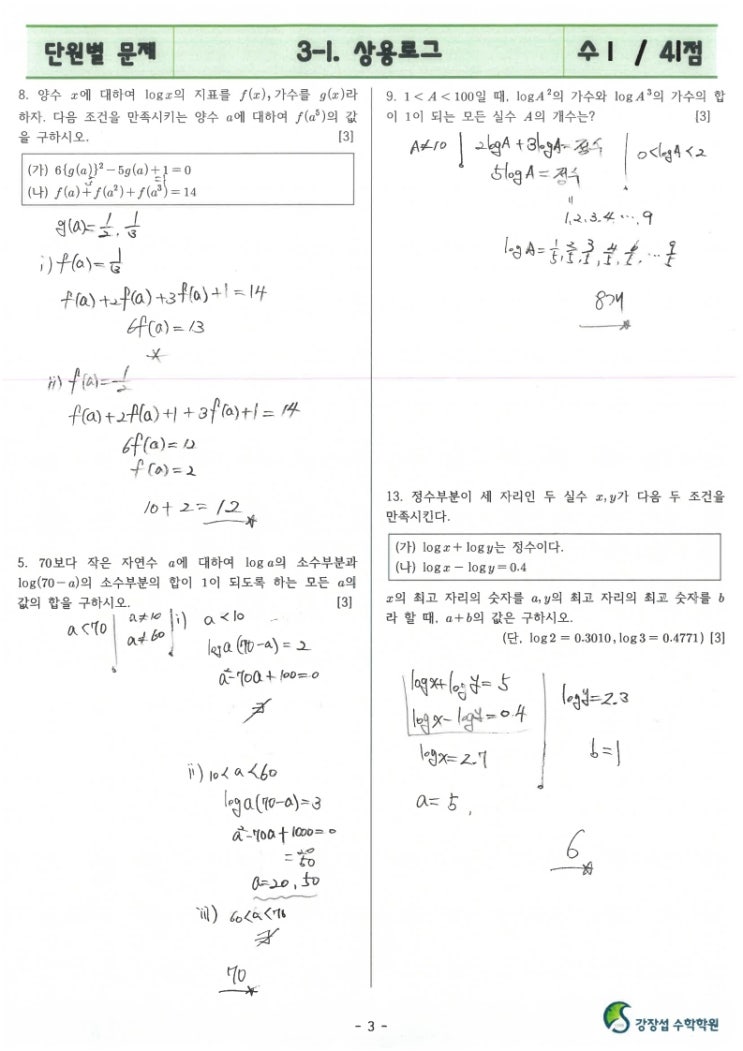 단원별 문제
3-1. 상용로그
수1 / 41점
8. 양수 x에 대하여 log x의 지표를 f(x), 가수를 g(x)라
하자. 다음 조건을 만족시키는 양수 a에 대하여 f(a⁵)의 값
을 구하시오. [3]
(가) 6{g(a)}²-5g(a)+1=0
(나) f(a)+f(a²)+f(a³)=14
g(a)=1/2, 1/3
i) f(a)=1/3
f(a)+2f(a)+3f(a)+1=14
6f(a)=13
ii) f(a)=1/2
f(a)+2f(a)+1+3f(a)+1=14
6f(a)=12
f(a)=2
10+2=12
5. 70보다 작은 자연수 a에 대하여 log a의 소수부분과
log(70-a)의 소수부분의 합이 1이 되도록 하는 모든 a의
값의 합을 구하시오. [3]
a<70
a≠10
a≠60
i) a<10
log a(70-a)=2
a²-70a+100=0
ii) 10<a<60
log a(70-a)=3
a²-70a+1000=0
a=20, 50
iii) 60<a<70
70
9. 1<A<100일 때, log A²의 가수와 log A³의 가수의 합
이 1이 되는 모든 실수 A의 개수는? [3]
A≠10
2logA+3logA=정수
5logA=정수
0<logA<2
1,2,3,4 …,9
logA=1/5, 2/5, 3/5, 4/5, 6/5, … 9/5
8개
13. 정수부분이 세 자리인 두 실수 x, y가 다음 두 조건을
만족시킨다.
(가) log x+log y는 정수이다.
(나) log x-log y=0.4
x의 최고 자리의 숫자를 a, y의 최고 자리의 최고 숫자를 b
라 할 때, a+b의 값은 구하시오.
(단, log 2 = 0.3010, log 3 = 0.4771) [3]
logx+logy=5
logx-logy=0.4
logx=2.7
a=5,
logy=2.3
b=1
6
- 3 -
강장섭 수학학원